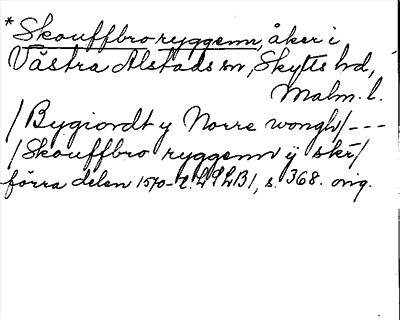 *Skouffbroryggenn, åker i
Västra Alstads sn, Skytts hd,
Malm. l.
/Bygiordt y Norre wongh/---
/Skouffbro ryggenn ÿ skr/
förra delen 1570-t. LPLB1, s. 368. orig.